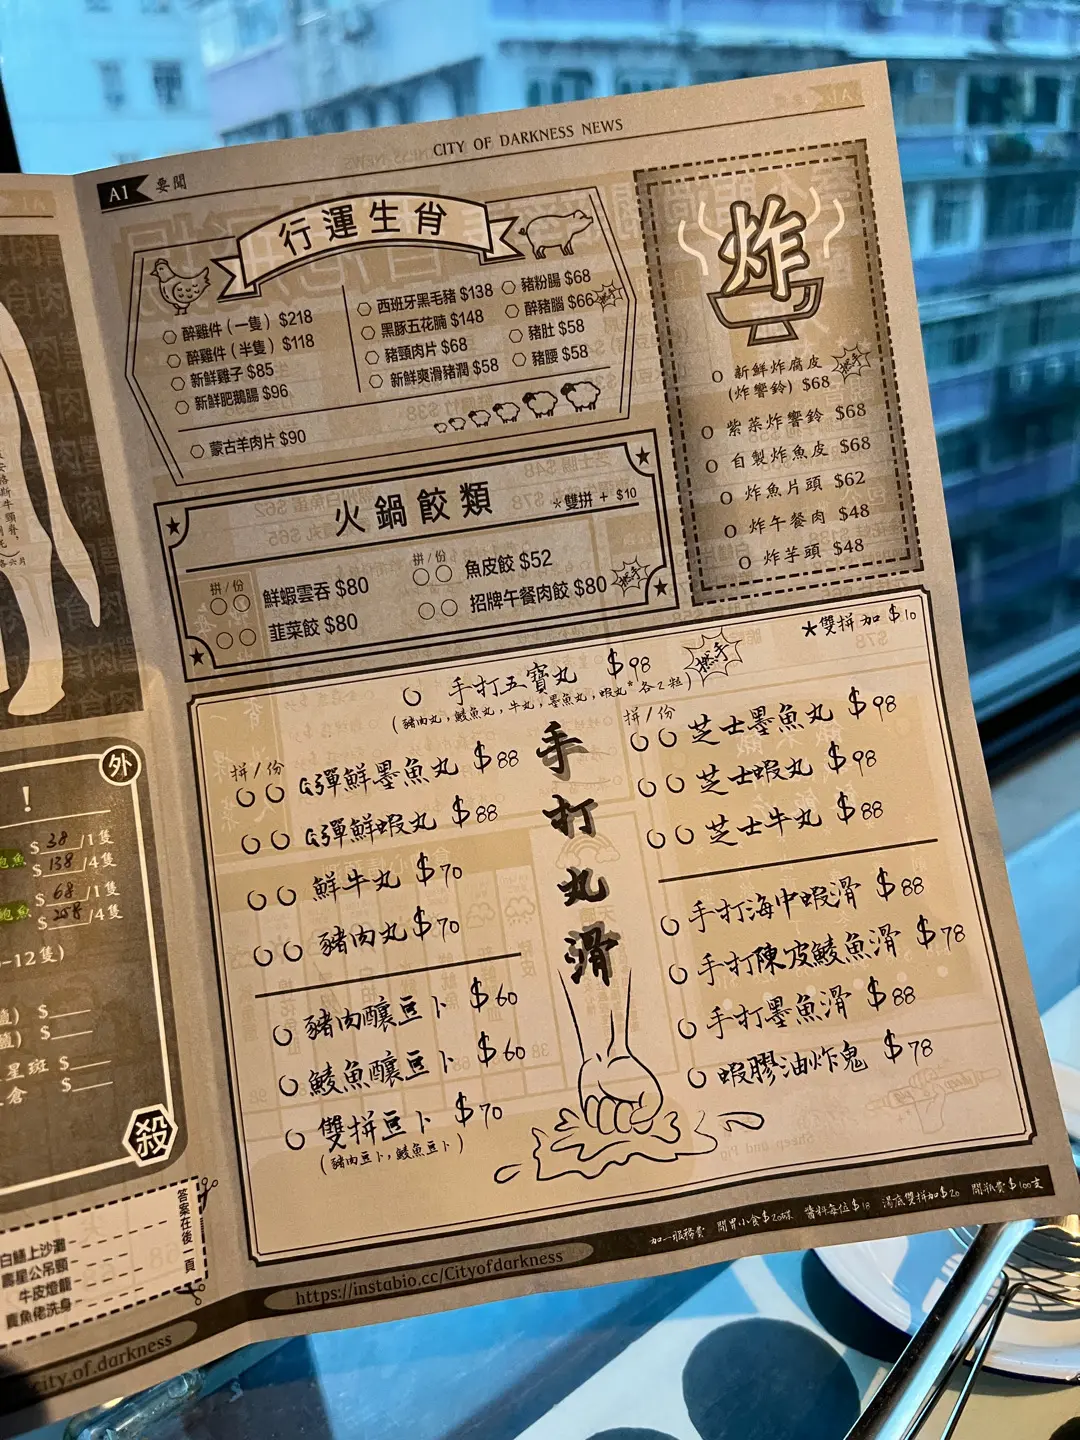 CITY OF DARKNESS NEWS
A1 要聞
行運生肖
醉雞件(一隻) $218
醉雞件(半隻) $118
新鮮雞子 $85
新鮮肥鵝腸 $96
西班牙黑毛豬 $138
黑豚五花腩 $148
豬頸肉片 $68
新鮮爽滑豬潤 $58
豬粉腸 $68
醉豬腦 $66
豬肚 $58
豬腰 $58
蒙古羊肉片 $90
炸
新鮮炸腐皮
(炸響鈴) $68
紫菜炸響鈴 $68
自製炸魚皮 $68
炸魚片頭 $62
炸午餐肉 $48
炸芋頭 $48
火鍋餃類
*雙拼 + $10
拼/份
鮮蝦雲吞 $80
韮菜餃 $80
拼/份
魚皮餃 $52
招牌午餐肉餃 $80
*雙拼加 $10
手打五寶丸 $98
(豬肉丸,鯪魚丸,牛丸,墨魚丸,蝦丸*各2粒)
手打丸滑
拼/份
彈鮮墨魚丸 $88
彈鮮蝦丸 $88
鮮牛丸 $70
豬肉丸 $70
豬肉釀豆卜 $60
鯪魚釀豆卜 $60
雙拼豆卜 $70
(豬肉豆卜,鯪魚豆卜)
拼/份
芝士墨魚丸 $98
芝士蝦丸 $98
芝士牛丸 $88
手打海中蝦滑 $88
手打陳皮鯪魚滑 $78
手打墨魚滑 $88
蝦膠油炸鬼 $78
加一服務費 開胃小食$20碟 醬料每位$18 湯底雙拼加$20 開瓶費$100支
https://instabio.cc/Cityofdarkness
外
!
$ 38 /1隻
鮑魚 $ 138 /4隻
$ 68 /1隻
鮑魚 $ 258 /4隻
-12隻)
$
$
星斑 $
倉 $
殺
答案在後一頁
白鱔上沙灘
壽星公吊頸
牛皮燈籠
賣魚佬洗身
city.of.darkness